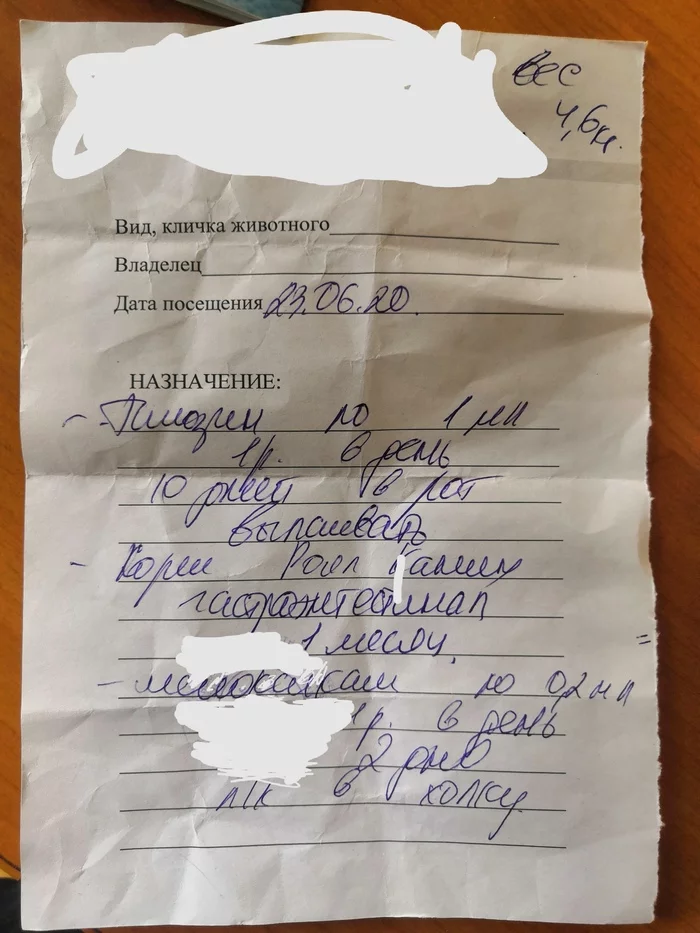 вес
4,6кг.
Вид, кличка животного
Владелец
Дата посещения 23.06.20.
НАЗНАЧЕНИЕ:
- по 1 мл
1р. в день
10 дней в рот
выпаивать
- Корм Роял Канин
гастроинтестинал
1 месяц.
- мелоксикам по 0,2 мл
1р. в день
2 дня
п/к в холку